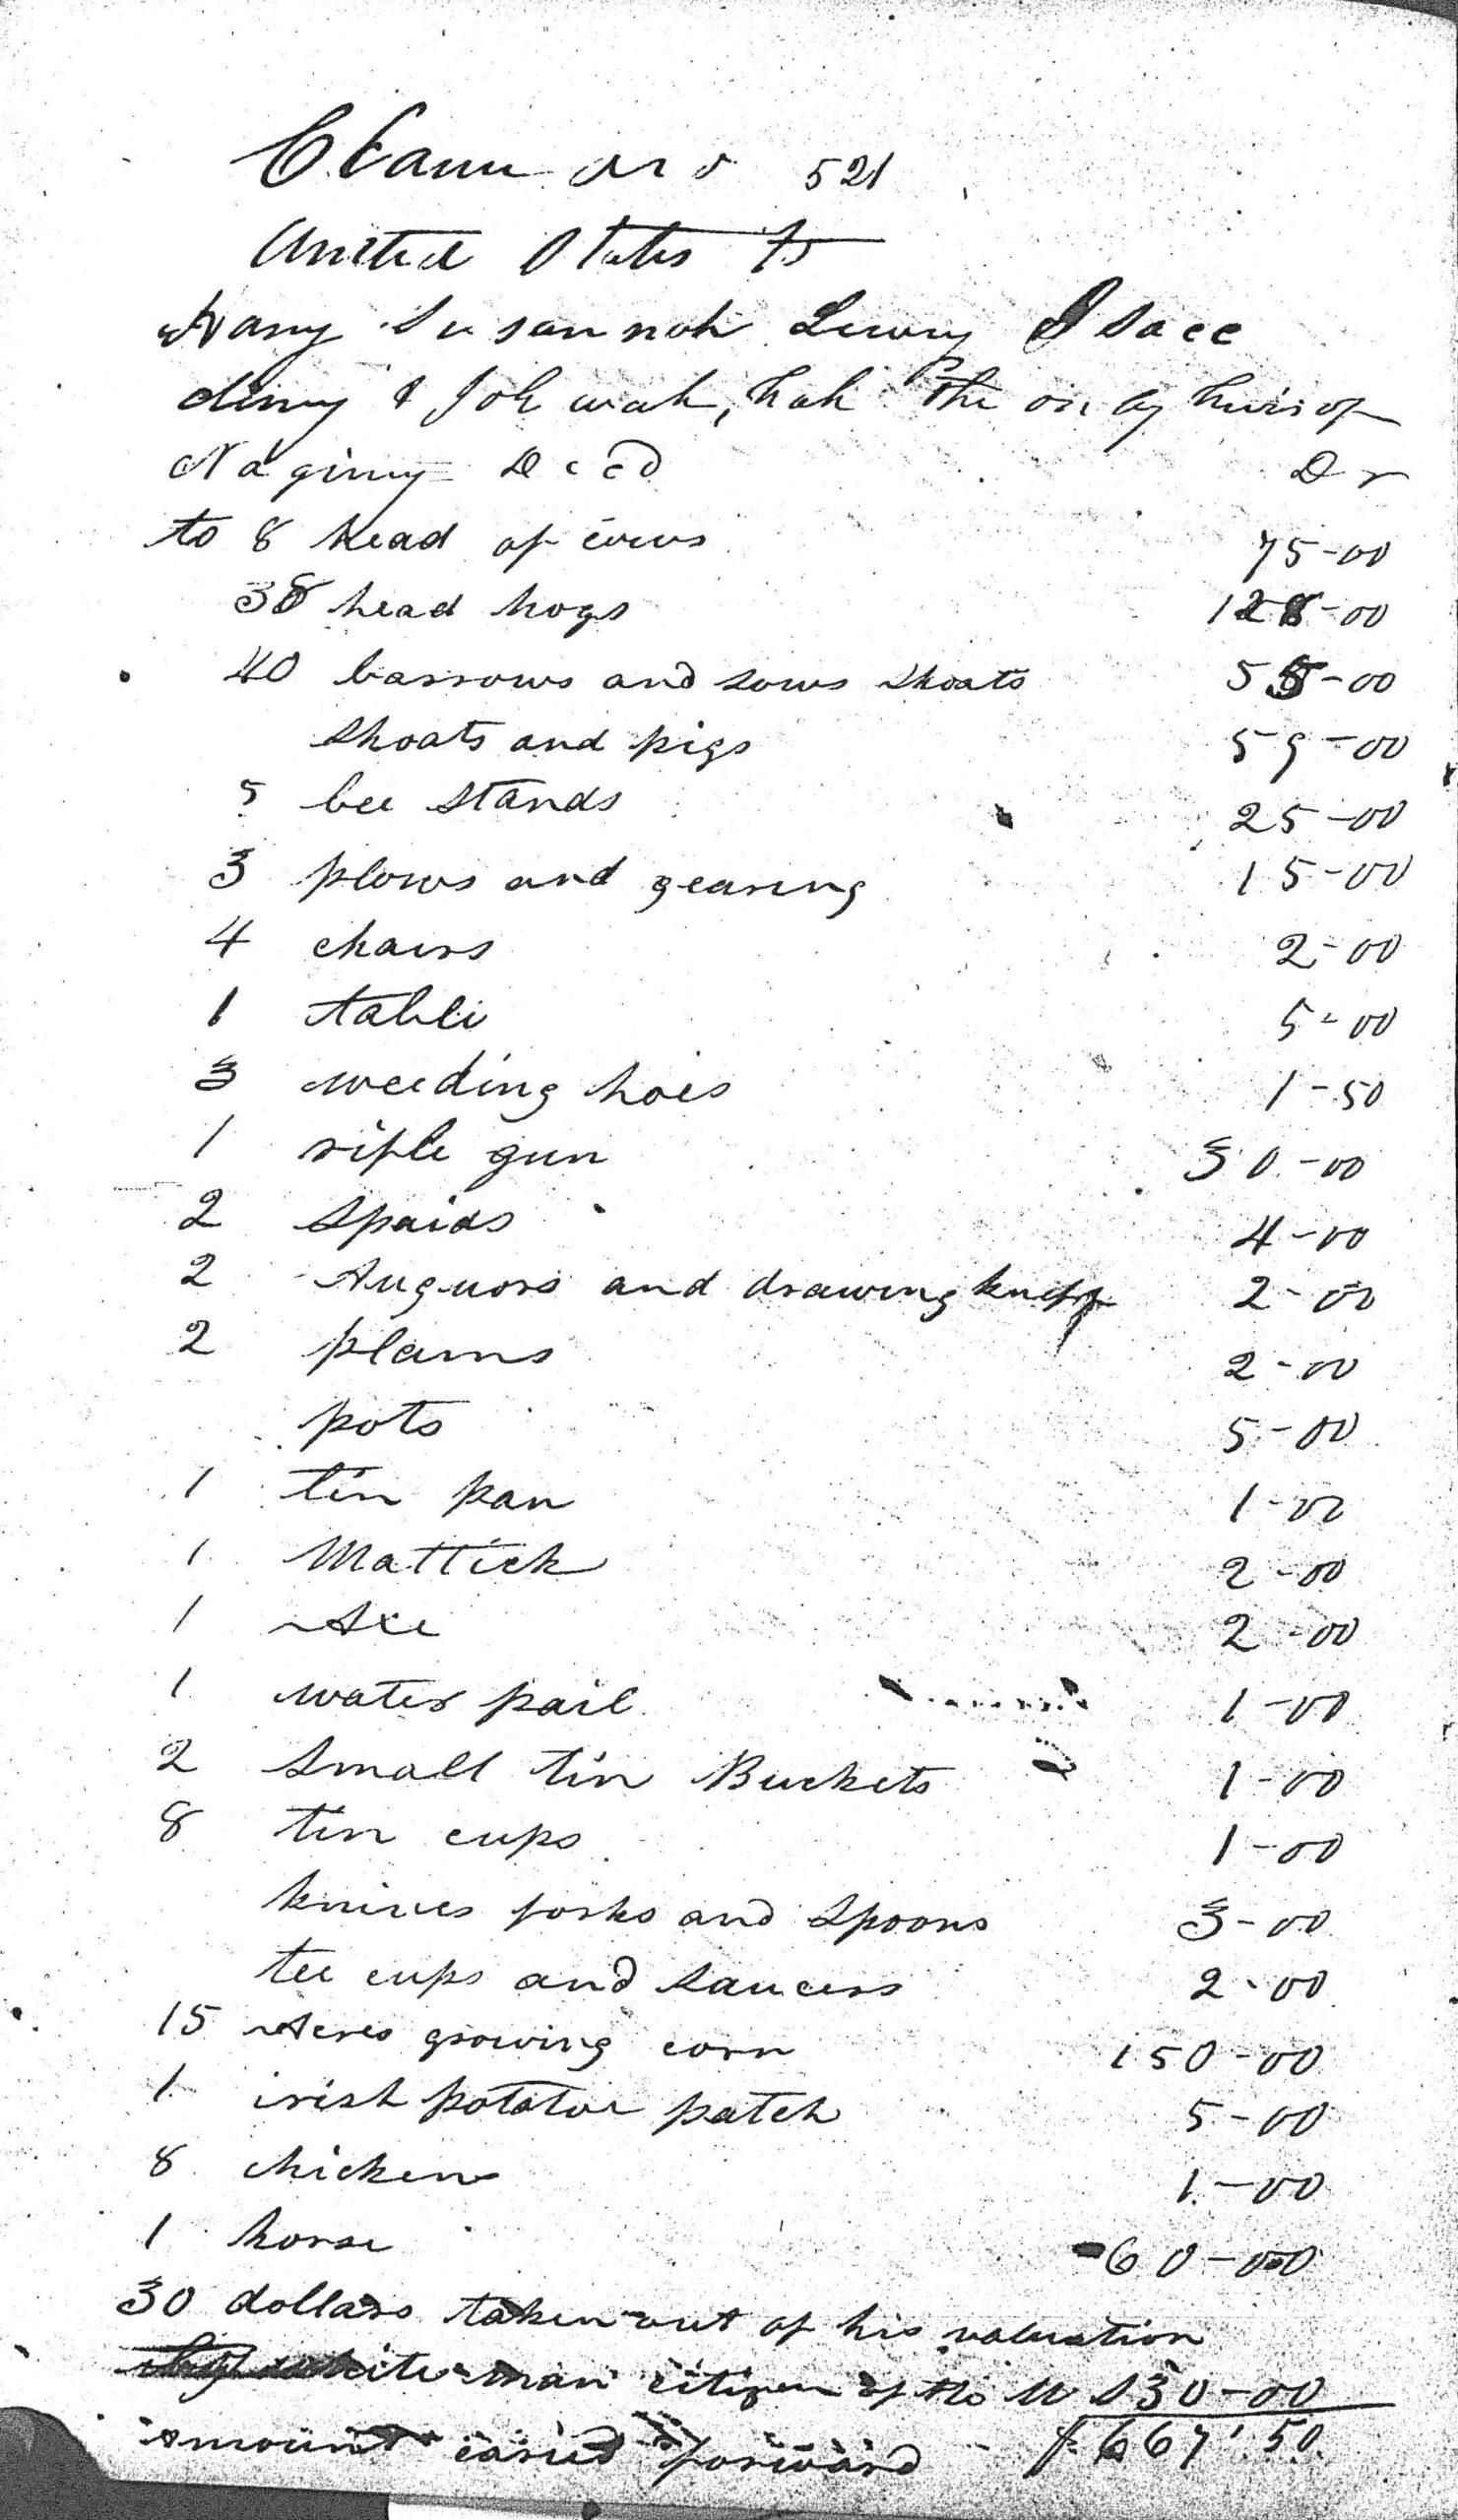 Claim No 5 521
United States to
Nany Susannah Lewy Isace
diny & Joh wah, kah the only heirs of
Naginy Decd Dr
to 8 head of cows 75-00
38 head hogs 128-00
40 barrows and sows shoats 55-00
shoats and pigs 59-00
5 bee stands 25-00
3 plows and gearing 15-00
4 chairs 2-00
1 table 5-00
3 weeding hoes 1-50
1 rifle gun 30-00
2 Spaids 4-00
2 Auguors and drawing kniff 2-00
2 plains 2-00
pots 5-00
1 tin pan 1-00
1 Mattick 2-00
1 Axe 2-00
1 water pail 1-00
2 Small tin Buckets 1-00
8 tin cups 1-00
knives forks and Spoons 3-00
tee cups and saucers 2-00
15 Acres growing corn 150-00
1 irish potatoe patch 5-00
8 chickens 1-00
1 horse 60-00
30 dollars taken out of his valuation
white man citizen of the U S 30-00
Amount caried forward $667.50